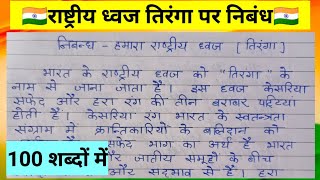 🇮🇳राष्ट्रीय ध्वज तिरंगा पर निबंध🇮🇳
निबन्ध - हमारा राष्ट्रीय ध्वज [तिरंगा]
भारत के राष्ट्रीय ध्वज को "तिरंगा" के
नाम से जाना जाता है। इस ध्वज केसरिया
सफेद और हरा रंग की तीन बराबर पट्टिया
होती है। केसरिया रंग भारत के स्वतन्त्रता
संग्राम में क्रान्तिकारियो के बलिदान को
सफेद भाग का अर्थ है भारत
और जातीय समूहो के बीच
और सदभाव से है। हरा
100 शब्दों में